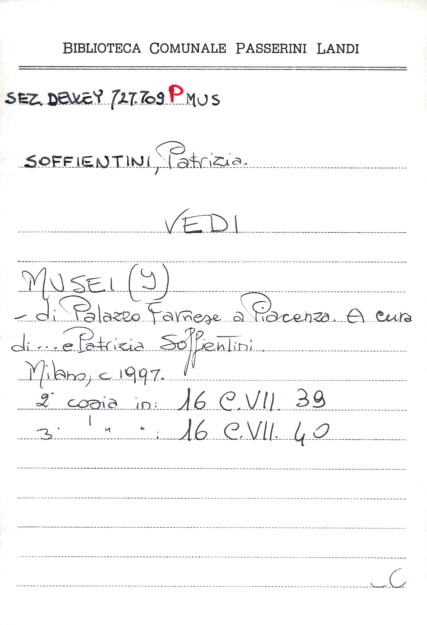 BIBLIOTECA COMUNALE PASSERINI LANDI
SEZ. DEWEY 727.709 P MUS
SOFFIENTINI, Patrizia.
VEDI
MUSEI (I)
- di Palazzo Farnese a Piacenza. A cura
di ... e Patrizia Soffientini.
Milano, c 1997.
2ª copia in: 16 C.VII. 39
3. " " ": 16 C.VII. 40